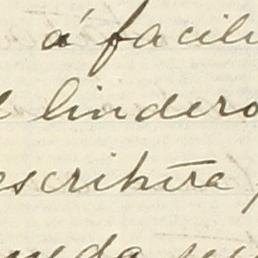 á facili
l lindero
escritura